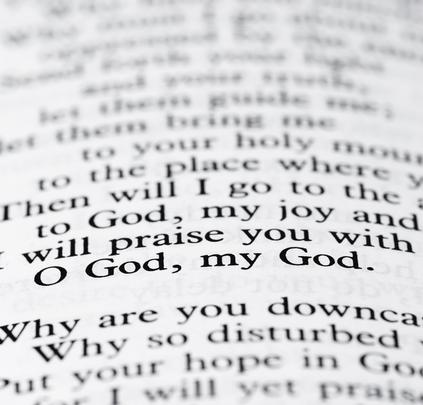 and your truth,
let them guide me;
let them bring me
to your holy moun
to the place where y
Then will I go to the a
to God, my joy and
I will praise you with
O God, my God.
Why are you downca
Why so disturbed
Put your hope in God
for I will yet praise